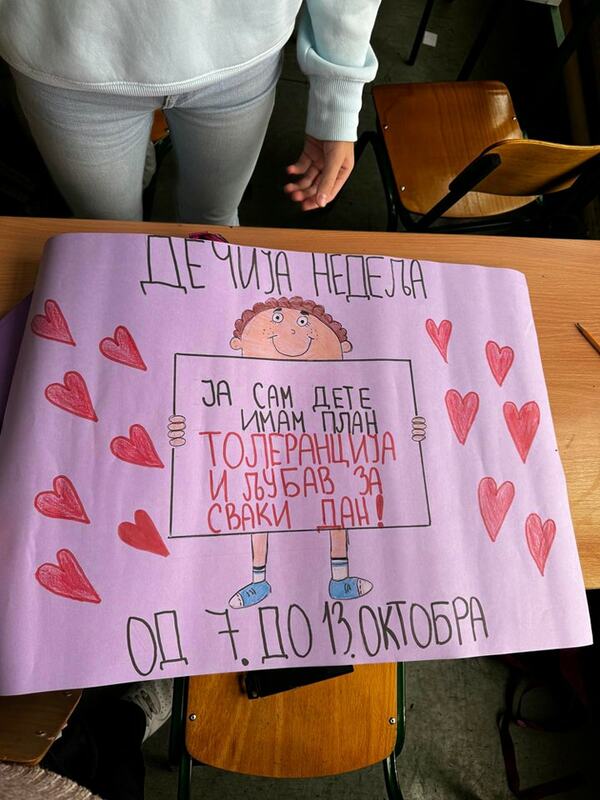 ДЕЧИЈА НЕДЕЉА
ЈА САМ ДЕТЕ
ИМАМ ПЛАН
ТОЛЕРАНЦИЈА
И ЉУБАВ ЗА
СВАКИ ДАН!
ОД 7. ДО 13. ОКТОБРА